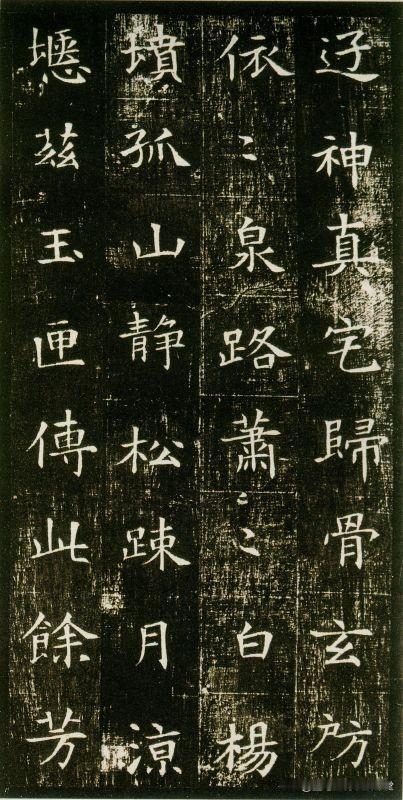 神真宅歸骨玄房
依〻泉路蕭〻白楊
墳孤山静松踈月涼
茲玉匣傳此餘芳